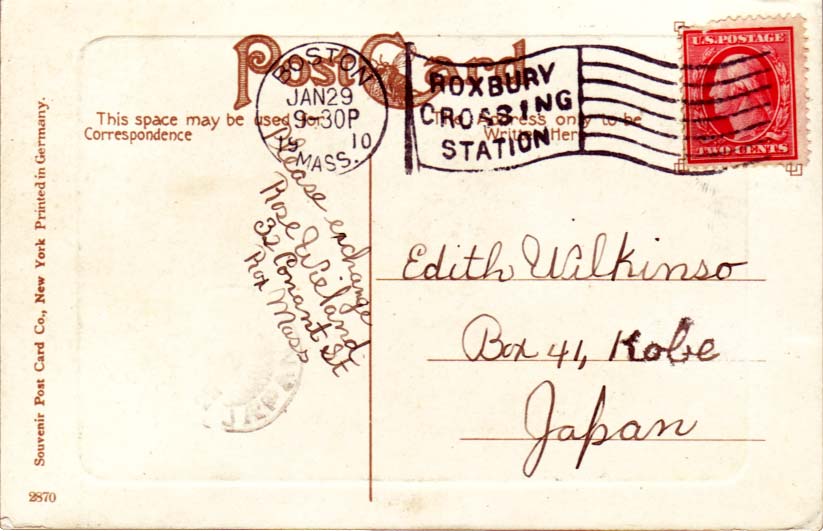 Post Card
This space may be used for
Correspondence
The Address only to be
Written Here
BOSTON
JAN 29
9-30P
19 10
MASS.
ROXBURY
CROSSING
STATION
U.S. POSTAGE
TWO CENTS
Please exchange
Rose Wieland
32 Conant St
Rox Mass
Edith Wilkinso
Box 41, Kobe
Japan
JAPAN
Souvenir Post Card Co., New York Printed in Germany.
2870